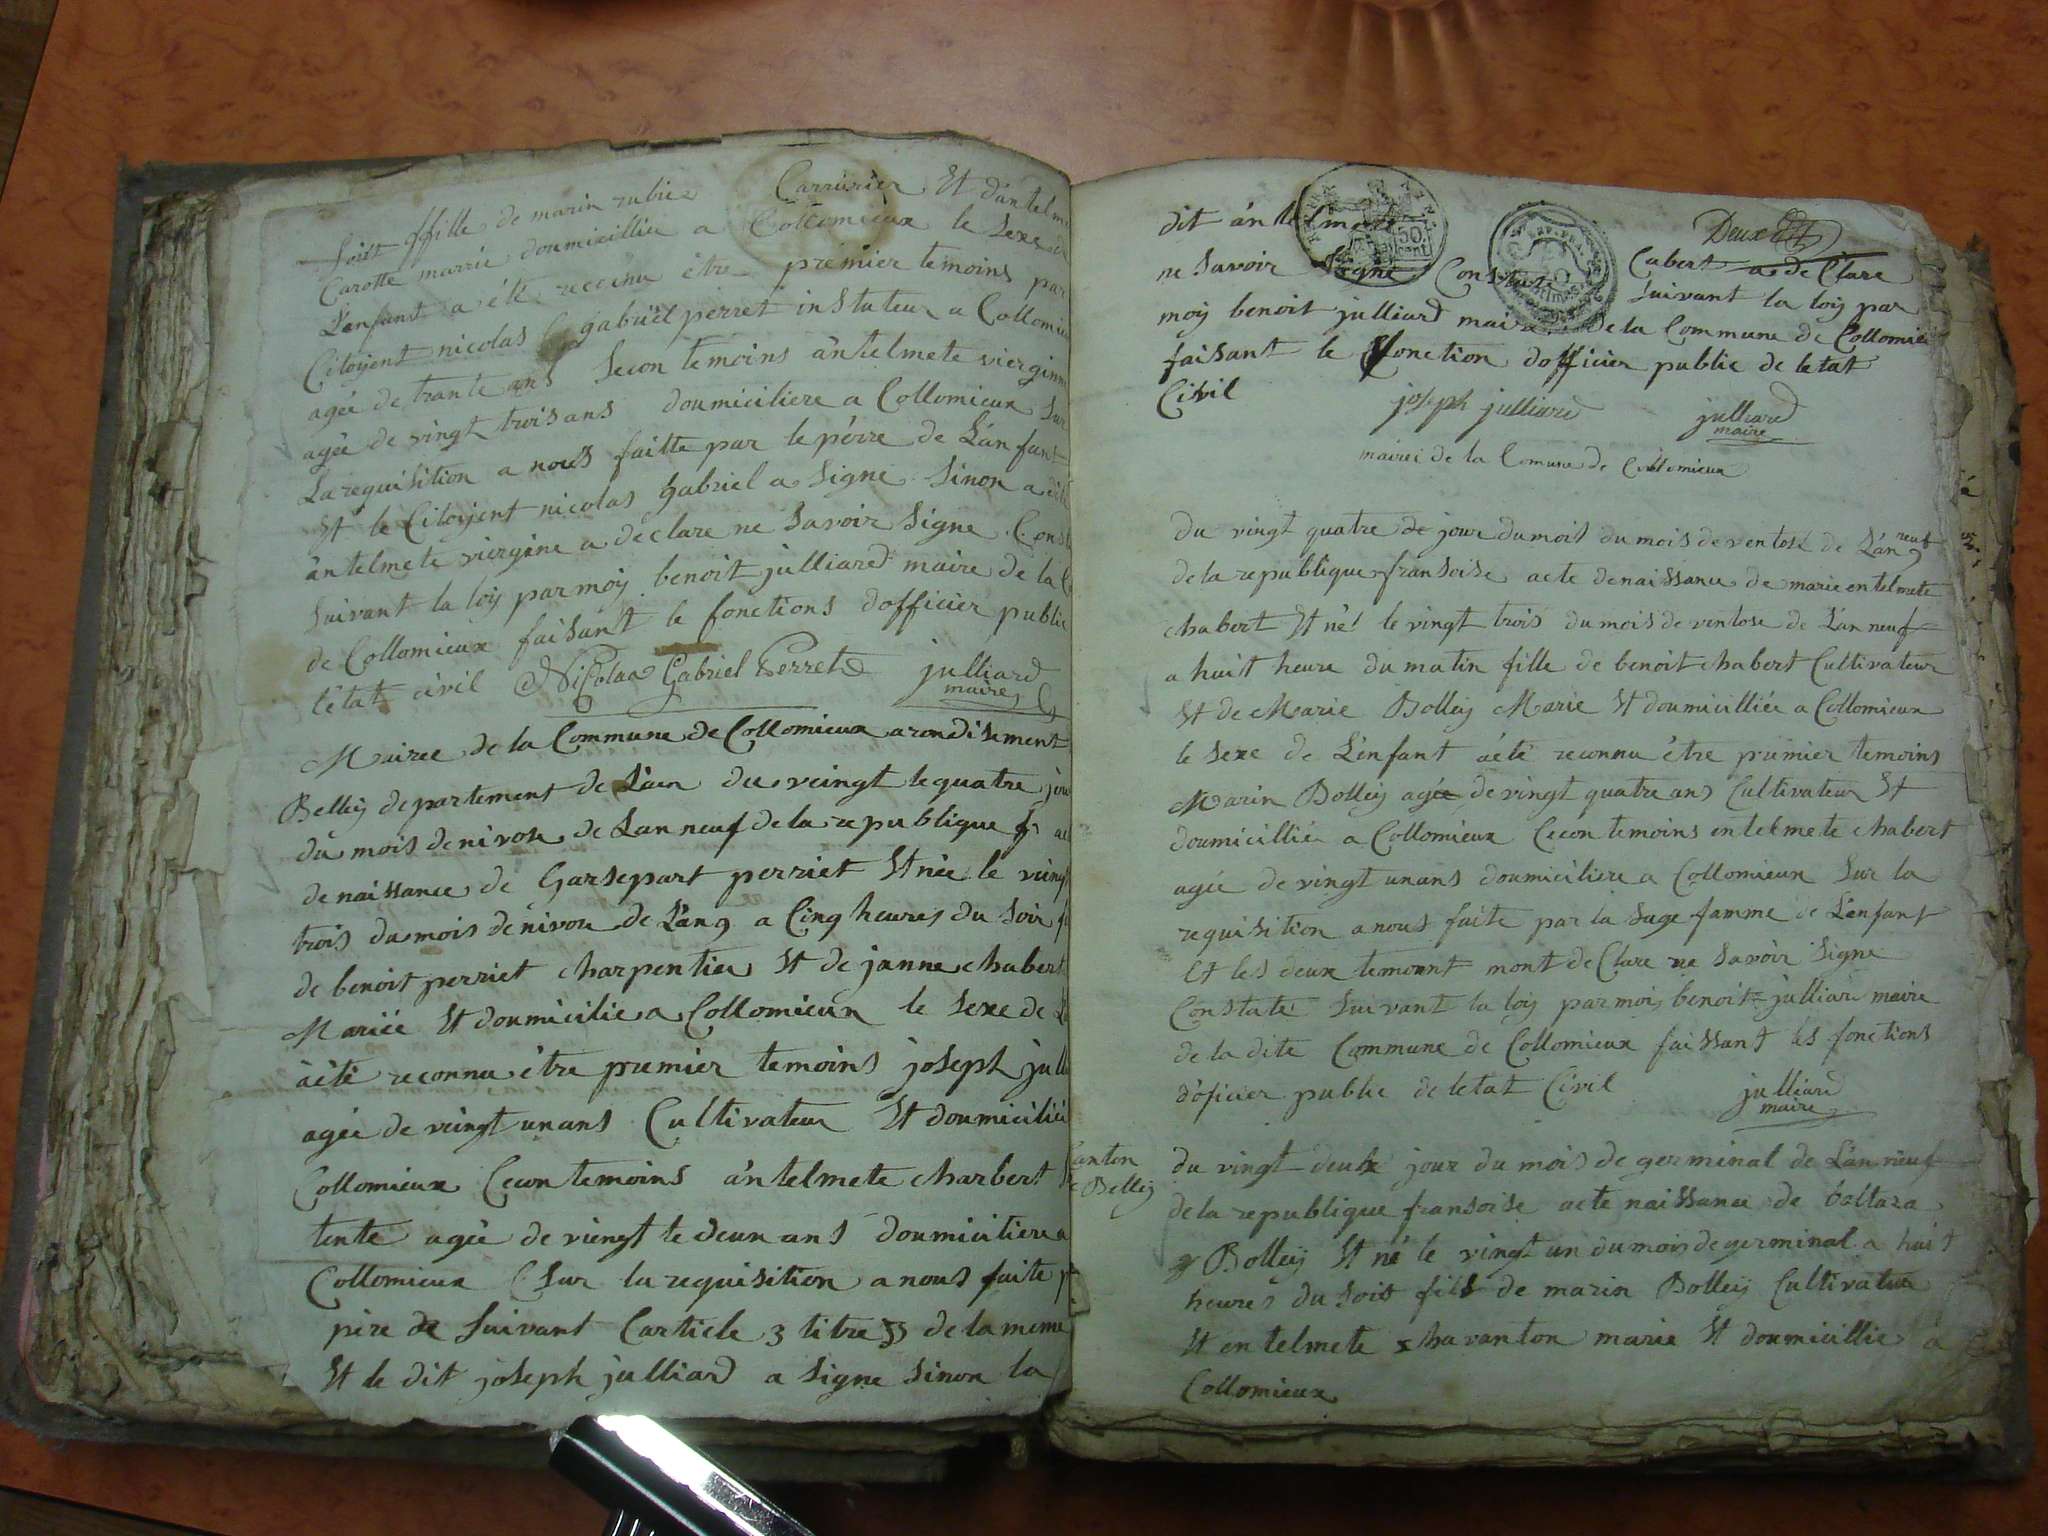 soir ffille de marin rubier Carrurier Et d'antelme
Carotte marrie doumicillier a Collomieux le sexe de
L'enfant a été reconnu être premier temoins par
Citoijent nicolas gabriel perret instateur a Collomieu
agée de trante ans secon temoins antelmete vierginne
agée de vingt trois ans doumiciliere a Collomieux sur
La requisition a nous faitte par le pérre de L'anfant
Et le Citoijent nicolas gabriel a signe sinon a
antelmete viergine a déclare ne savoir signe Const
suivant la loij par moij benoit julliard maire de la
de Collomieux faisant le fonctions dofficier public
létat civil Nicolas Gabriel Perret julliard
maire
Mairee de la Commune de Collomieux arondisement
Belleij departement de Lain du veingt te quatre jour
du mois de nivose de Lan neuf de la republique fr
de naissance de Garsepart perriet Et née le vieng
trois du mois de nivose de L'an 9 a Cinq heures du soir
de benoit perriet charpentier Et de janne chabert
Mariée Et doumicilie a Collomieux le sexe de
àété reconnu être premier temoins joseph jull
agée de veingt un ans Cultivateur Et doumicilié
Collomieux Cecon temoins antelmete charbert
tente agée de viengt te deux ans doumiciliere a
Collomieux sur la requisition a nous faite p
père de suivant l'article 3 titre 55 de la meme
Et le dit joseph julliard a signe sinon la
Deux
dit antelmete Cabert a de Clare
ne savoir signe Constate suivant la loij par
moij benoit julliard maire de la Commune de Collomie
faisant le fonction dofficier public de letat
Civil joseph julliard julliard
maire
mairei de la Comune de Collomieux
Du vingt quatre de jour du mois du mois de ventose de L'an neuf 9
de la republique fransoise acte de naissance de marie entelmete
chabert Et né le vingt trois du mois de ventose de L'an neuf
a huit heure du matin fille de benoit chabert Cultivateur
Et de Marie Bolleij Marie Et doumicilliée a Collomieux
le sexe de L'enfant àété reconnu être premier temoins
Marin Bolleij agée de vingt quatre ans Cultivateur Et
doumicillié a Collomieux Cecon temoins entelmete chabert
agée de vingt un ans doumiciliere a Collomieux sur la
requisition a nous faite par la sage famme de L'enfant
Et les deux temount mont de Clare ne savoir signe
Constaté suivant la loij par mois benoit julliar maire
de la dite Commune de Collomieux faissant les fonctions
d'oficier public de letat Civil julliard
maire
Canton
Belleij
du vingt deux jour du mois de germinal de L'an neuf
de la republique fransoise acte naissance de baltaza
Bolleij Et né le vingt un du mois de germinal a huit
heures du soit fils de marin Bolleij Cultivateur
Et entelmete chavanton marie Et doumicillie a
Collomieux